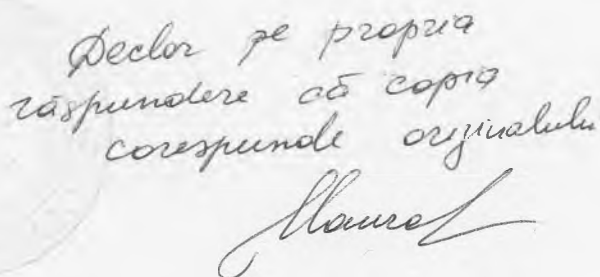 Declar pe propria
răspundere că copia
corespunde originalului